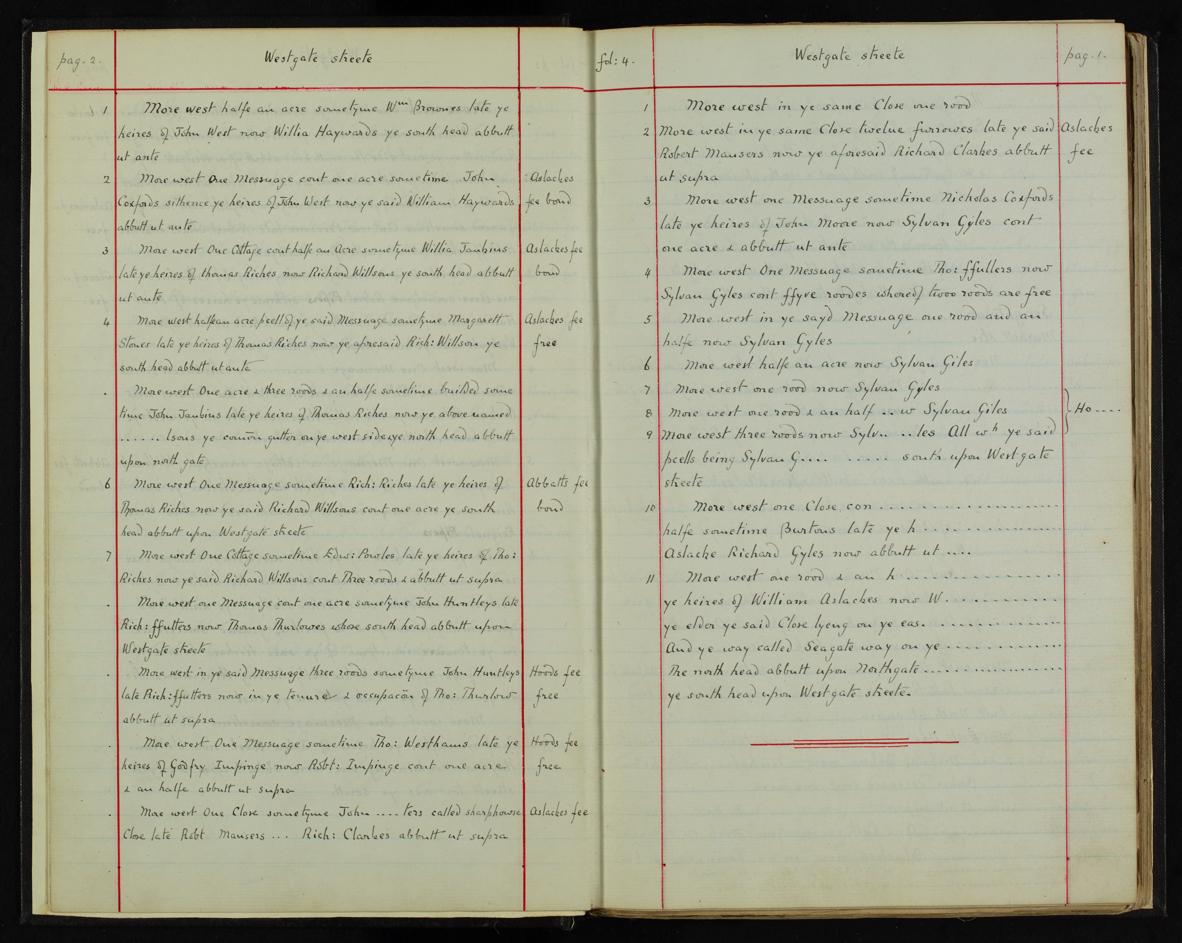 pag. 2.
Westgate streete
1 More west halfe an acre sometyme Wm Brownes late ye
heires of John West now Willia Haywards ye south head abbutt
ut ante
2 More west One Messuage cont one acre sometime John
Coxfords sithence ye heires of John West now ye said William Haywards
abbutt ut ante
Aslackes
fee bond
3 More west One Cottage cont halfe an Acre sometyme Willia Janbins
late ye heires of thomas Riches now Richard Willsons ye south head abbutt
ut ante
Aslackes fee
bond
4 More west halfe an acre pcell of ye said Messuage sometyme Margarett
Stones late ye heires of Thomas Riches now ye aforesaid Rich: Willson ye
south head abbutt ut ante
Aslackes fee
free
. More west One acre & three roods & an halfe sometime builded some
time John Janbins late ye heires of Thomas Riches now ye above named
...... lsons ye comōn gutter on ye west side & ye north head abbutt
upon north gate
6 More west One Messuage sometime Rich: Riches late ye heires of
Thomas Riches now ye said Richard Willsons cont one acre ye south
head abbutt upon Westgate streete
Abbatts fee
bond
7 More west One Cottage sometime Edw: Powles late ye heires of Tho:
Riches now ye said Richard Willsons cont Three roods & abbutt ut supra
. More west one Messuage cont one acre sometyme John Huntleys late
Rich: ffutters now Thomas Thurlowes whose south head abbutt upon
Westgate streete
. More west in ye said Messuage three roods sometyme John Huntleys
late Rich: ffutters now in ye tenure & occupacōn of Tho: Thurlow
abbutt ut supra
Hoods fee
free
. More west One Messuage sometime Tho: Westhams late ye
heires of Godfry Impinge now Robt: Impinge cont one acre
& an halfe abbutt ut supra
Hoods fee
free
. More west One Close sometyme John .... ters called sharphowse
Close late Robt Mansers ... Rich: Clarkes abbutt ut supra
Aslackes fee
fol: 4.
Westgate streete
pag. 1.
1 More west in ye same Close one rood
2 More west in ye same Close twelve furrowes late ye said
Robert Mansers now ye aforesaid Richard Clarkes abbutt
ut supra
Aslackes
fee
3 More west one Messuage sometime Nicholas Coxfords
late ye heires of John Moore now Sylvan Gyles cont
one acre & abbutt ut ante
4 More west One Messuage sometime Tho: ffullers now
Sylvan Gyles cont ffyve roodes whereof twoo roods are free
5 More west in ye sayd Messuage one rood and an
halfe now Sylvan Gyles
6 More west halfe an acre now Sylvan Giles
7 More west one rood now Sylvan Gyles
8 More west one rood & an half .. w Sylvan Giles
Ho ....
9 More west three roods now Sylv.. ..les All wh ye said
pcells being Sylvan G.... ..... south upon Westgate
streete
10 More west one Close con ....................
halfe sometime Burtons late ye h ...............
Aslacke Richard Gyles now abbutt ut ....
11 More west one rood & an h .................
ye heires of William Aslackes now W. ............
ye elder ye said Close lyeng on ye eas. .............
And ye way called Seagate way on ye .............
The north head abbutt upon Northgate ..............
ye south head upon Westgate streete.